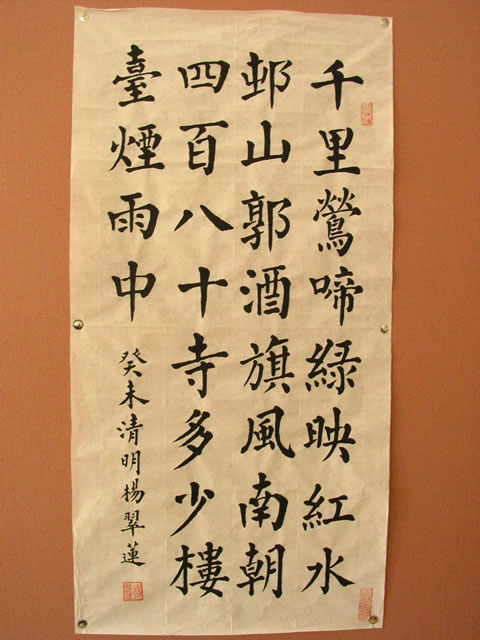 千里鶯啼緑映紅水
邨山郭酒旗風南朝
四百八十寺多少樓
臺煙雨中
癸未清明楊翠蓮